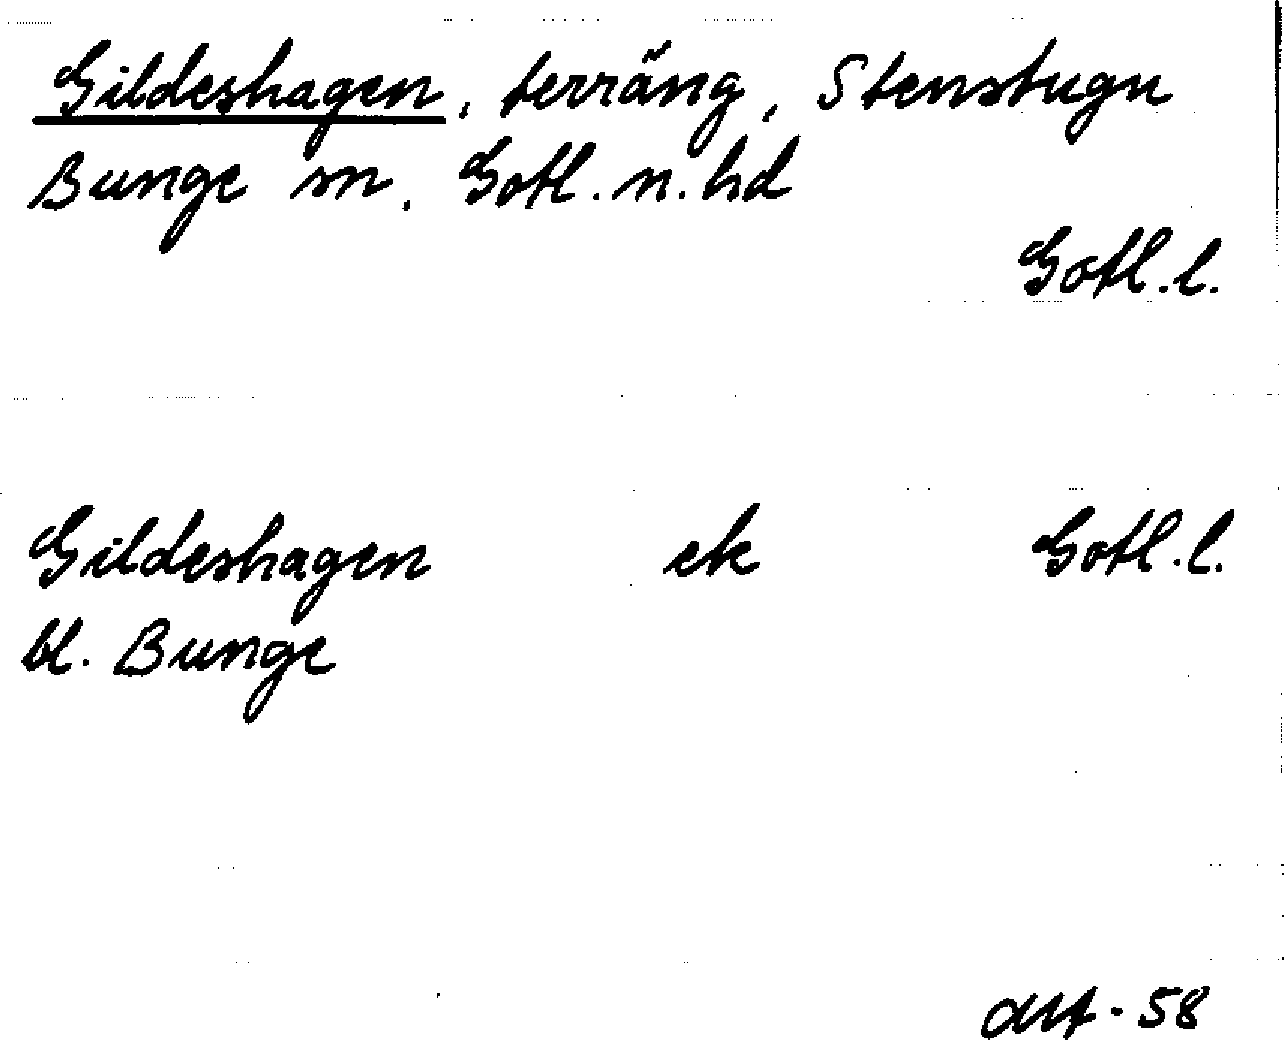 Gildeshagen, terräng, Stenstugu
Bunge sn, Gotl. n. hd
Gotl. l.
Gildeshagen ek Gotl. l.
bl. Bunge
- 58